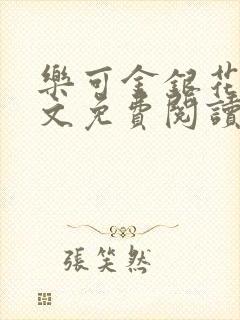 樂可金銀花
文免費閱讀
張笑然